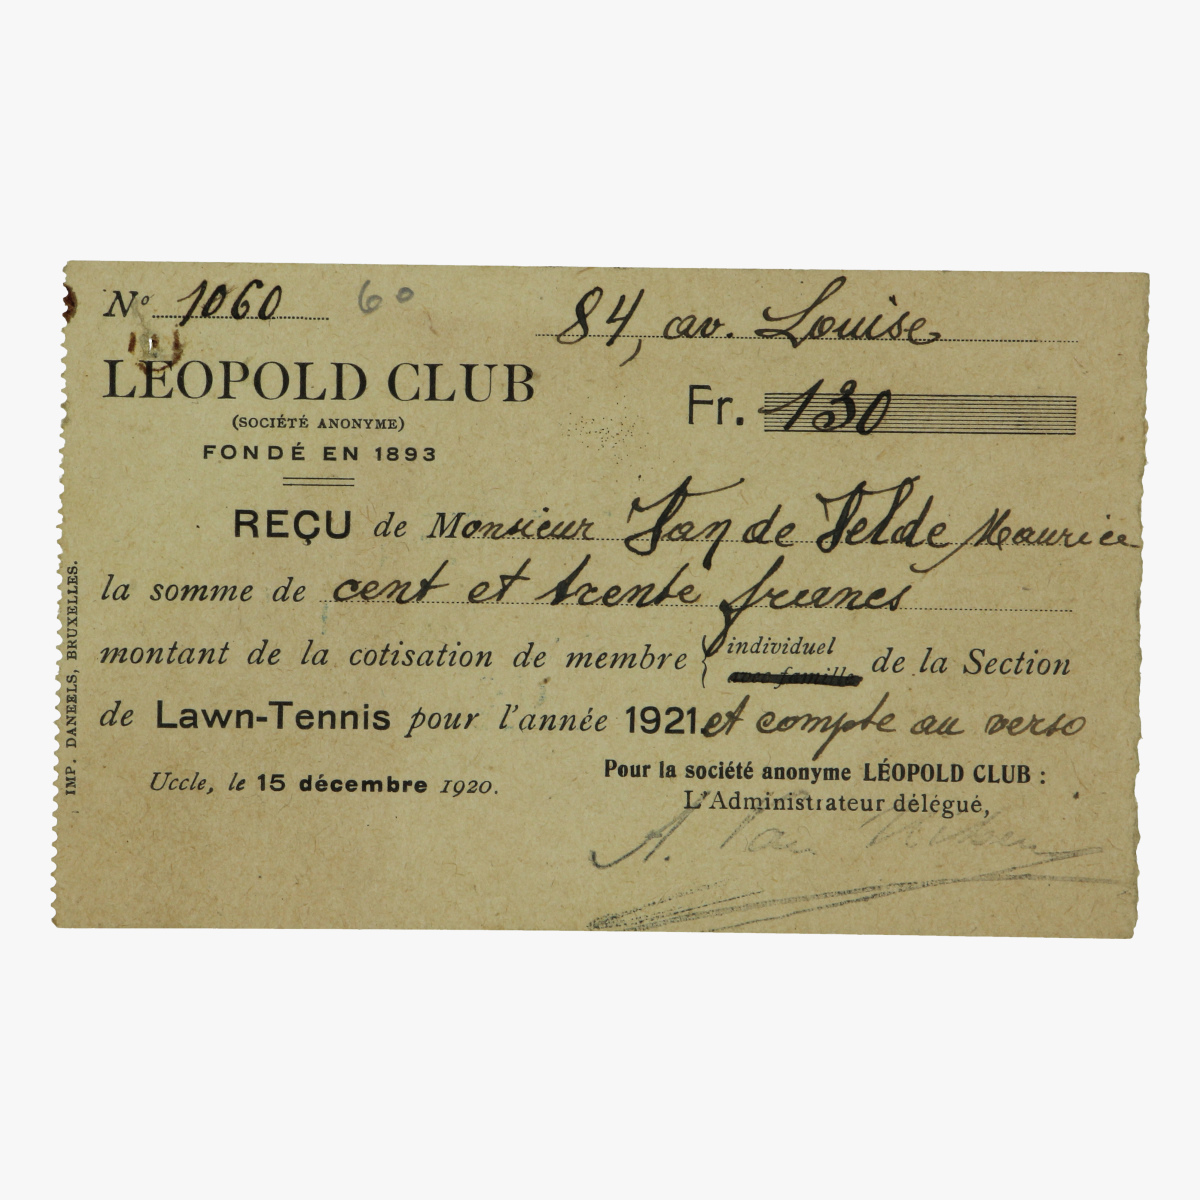 Nº 1060 60
84, av. Louise
LÉOPOLD CLUB
(SOCIÉTÉ ANONYME)
FONDÉ EN 1893
Fr. 130
REÇU de Monsieur Van de Velde Maurice
la somme de cent et trente francs
montant de la cotisation de membre { individuel
avec famille
de la Section
de Lawn-Tennis pour l'année 1921. et compte au verso
Uccle, le 15 décembre 1920.
Pour la société anonyme LÉOPOLD CLUB :
L'Administrateur délégué,
A. Van
IMP. DANEELS, BRUXELLES.